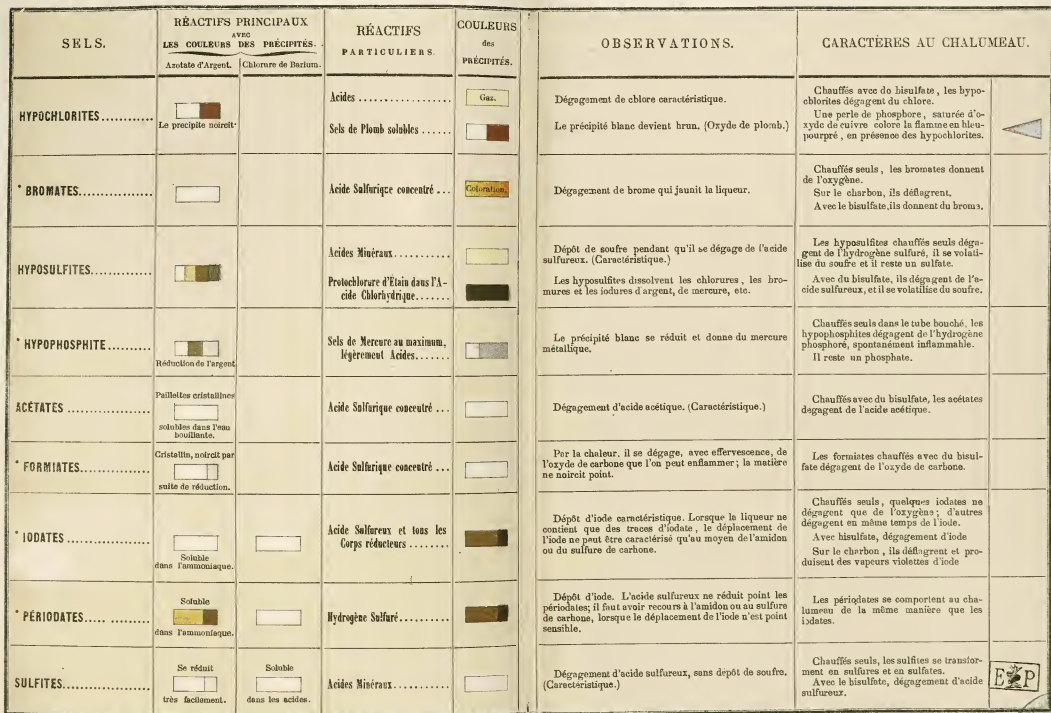 SELS.
RÉACTIFS PRINCIPAUX
AVEC
LES COULEURS DES PRÉCIPITÉS.
Azotate d'Argent.
Chlorure de Barium.
RÉACTIFS
PARTICULIERS.
COULEURS
des
PRÉCIPITÉS.
OBSERVATIONS.
CARACTÈRES AU CHALUMEAU.
HYPOCHLORITES
Le précipité noircit.
Acides
Gaz.
Sels de Plomb solubles
Dégagement de chlore caractéristique.
Le précipité blanc devient brun. (Oxyde de plomb.)
Chauffés avec do bisulfate, les hypo-
chlorites dégagent du chlore.
Une perle de phosphore, saturée d'o-
xyde de cuivre colore la flamme en bleu-
pourpré, en présence des hypochlorites.
* BROMATES
Acide Sulfurique concentré
Coloration.
Dégagement de brome qui jaunit la liqueur.
Chauffés seuls, les bromates donnent
de l'oxygène.
Sur le charbon, ils déflagrent.
Avec le bisulfate, ils donnent du brome.
HYPOSULFITES
Acides Minéraux
Protochlorure d'Étain dans l'A-
cide Chlorhydrique
Dépôt de soufre pendant qu'il se dégage de l'acide
sulfureux. (Caractéristique.)
Les hyposulfites dissolvent les chlorures, les bro-
mures et les iodures d'argent, de mercure, etc.
Les hyposulfites chauffés seuls déga-
gent de l'hydrogène sulfuré, il se volati-
lise du soufre et il reste un sulfate.
Avec du bisulfate, ils dégagent de l'a-
cide sulfureux, et il se volatilise du soufre.
* HYPOPHOSPHITE
Réduction de l'argent
Sels de Mercure au maximum,
légèrement Acides
Le précipité blanc se réduit et donne du mercure
métallique.
Chauffés seuls dans le tube bouché, les
hypophosphites dégagent de l'hydrogène
phosphoré, spontanément inflammable.
Il reste un phosphate.
ACÉTATES
Paillettes cristallines
solubles dans l'eau
bouillante.
Acide Sulfurique concentré
Dégagement d'acide acétique. (Caractéristique.)
Chauffés avec du bisulfate, les acétates
dégagent de l'acide acétique.
* FORMIATES
Cristallin, noircit par
suite de réduction.
Acide Sulfurique concentré
Par la chaleur, il se dégage, avec effervescence, de
l'oxyde de carbone que l'on peut enflammer; la matière
ne noircit point.
Les formiates chauffés avec du bisul-
fate dégagent de l'oxyde de carbone.
* IODATES
Soluble
dans l'ammoniaque.
Acide Sulfureux et tous les
Corps réducteurs
Dépôt d'iode caractéristique. Lorsque la liqueur ne
contient que des traces d'iodate, le déplacement de
l'iode ne peut être caractérisé qu'au moyen de l'amidon
ou du sulfure de carbone.
Chauffés seuls, quelques iodates ne
dégagent que de l'oxygène; d'autres
dégagent en même temps de l'iode.
Avec bisulfate, dégagement d'iode
Sur le charbon, ils déflagrent et pro-
duisent des vapeurs violettes d'iode
* PÉRIODATES
Soluble
dans l'ammoniaque.
Hydrogène Sulfuré
Dépôt d'iode. L'acide sulfureux ne réduit point les
périodates; il faut avoir recours à l'amidon ou au sulfure
de carbone, lorsque le déplacement de l'iode n'est point
sensible.
Les périodates se comportent au cha-
lumeau de la même manière que les
iodates.
SULFITES
Se réduit
très facilement.
Soluble
dans les acides.
Acides Minéraux
Dégagement d'acide sulfureux, sans dépôt de soufre.
(Caractéristique.)
Chauffés seuls, les sulfites se transfor-
ment en sulfures et en sulfates.
Avec le bisulfate, dégagement d'acide
sulfureux.
E P